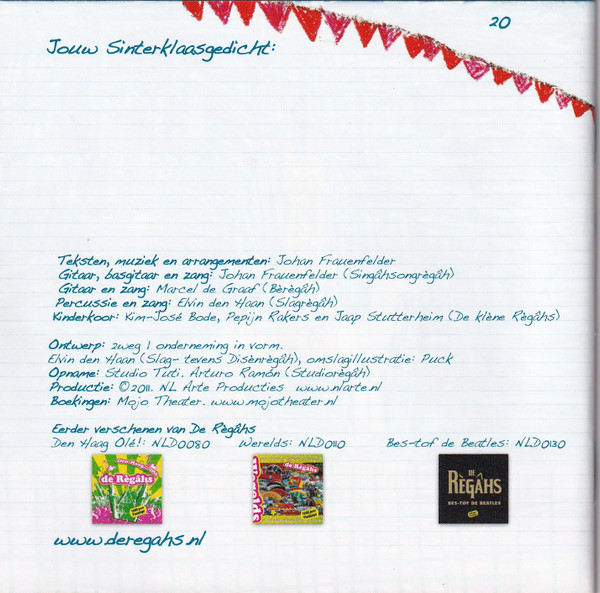 20
Jouw Sinterklaasgedicht:
Teksten, muziek en arrangementen: Johan Frauenfelder
Gitaar, basgitaar en zang: Johan Frauenfelder (Singâhsongrègâh)
Gitaar en zang: Marcel de Graaf (Bèrègâh)
Percussie en zang: Elvin den Haan (Slàgrègâh)
Kinderkoor: Kim-José Bode, Pepijn Rakers en Jaap Stutterheim (De klène Règâhs)
Ontwerp: 2weg | onderneming in vorm.
Elvin den Haan (Slag- tevens Disènrègâh), omslagillustratie: Puck
Opname: Studio Tuti. Arturo Ramón (Studiorègâh)
Productie: ©2011. NL Arte Producties www.nlarte.nl
Boekingen: Mojo Theater. www.mojotheater.nl
Eerder verschenen van De Règâhs
Den Haag Olé!: NLD0080 Werelds: NLD0110 Bes-tof de Beatles: NLD0130
de Règâhs
de Règâhs
werelds
DE
RÈGÂHS
BES-TOF DE BEATLES
www.deregahs.nl